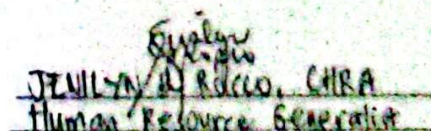 JENILYN R. ROCCO, CHRA
Human Resource Generalist